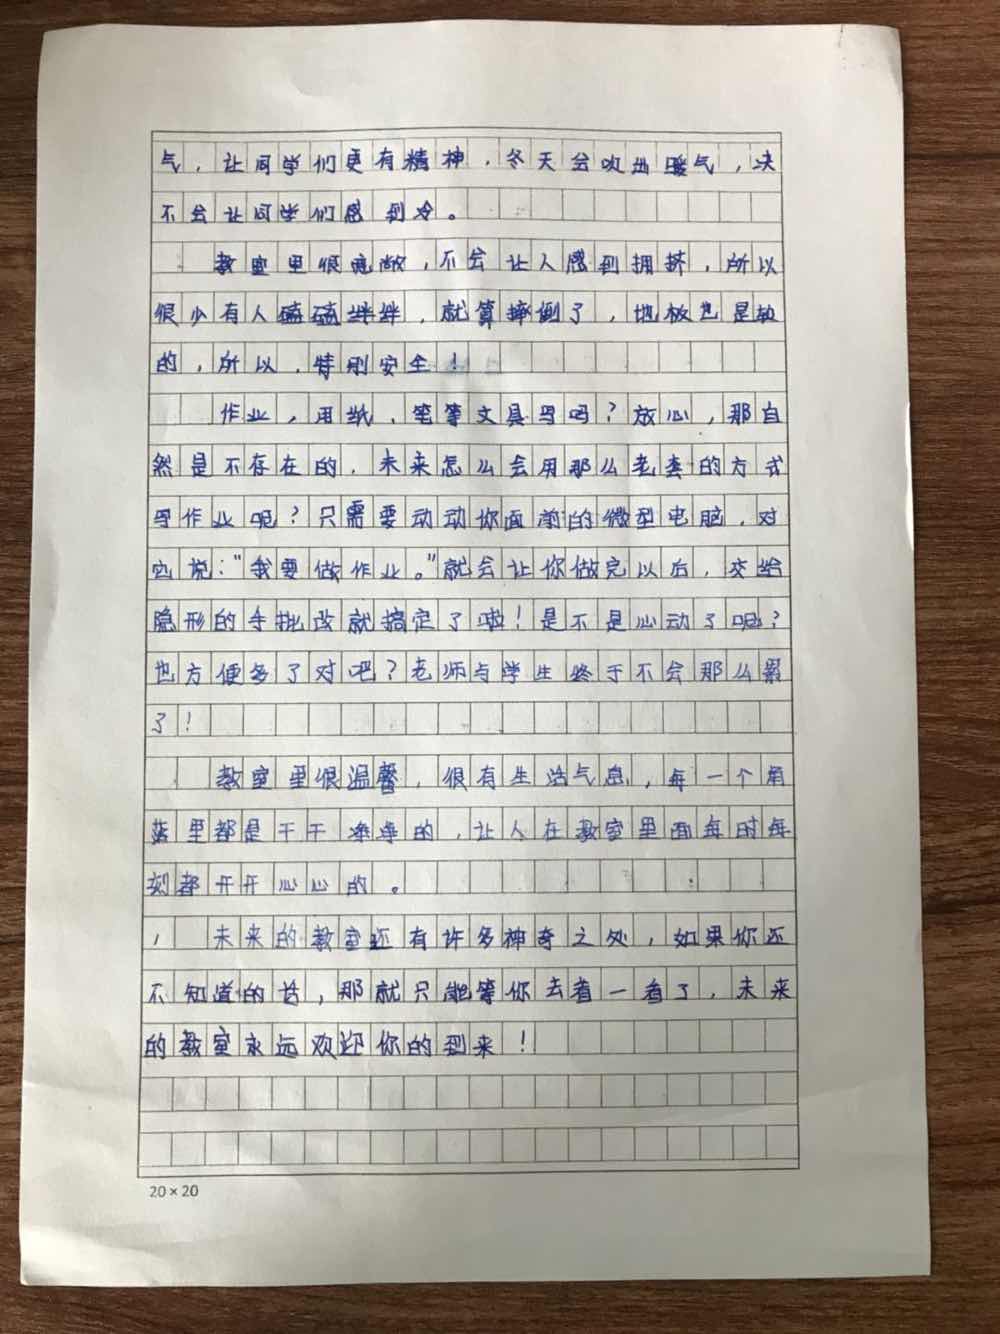 气，让同学们更有精神，冬天会吹出暖气，决
不会让同学们感到冷。
教室里很宽敞，不会让人感到拥挤，所以
很少有人磕磕绊绊，就算摔倒了，地板也是软
的，所以，特别安全！
作业，用纸、笔等文具写吗？放心，那自
然是不存在的，未来怎么会用那么老套的方式
写作业呢？只需要动动你面前的微型电脑，对
它说：“我要做作业。”就会让你做完以后，交给
隐形的手批改就搞定了啦！是不是心动了呢？
也方便多了对吧？老师与学生终于不会那么累
了！
教室里很温馨，很有生活气息，每一个角
落里都是干干净净的，让人在教室里面每时每
刻都开开心心的。
，未来的教室还有许多神奇之处，如果你还
不知道的话，那就只能等你去看一看了，未来
的教室永远欢迎你的到来！
20×20